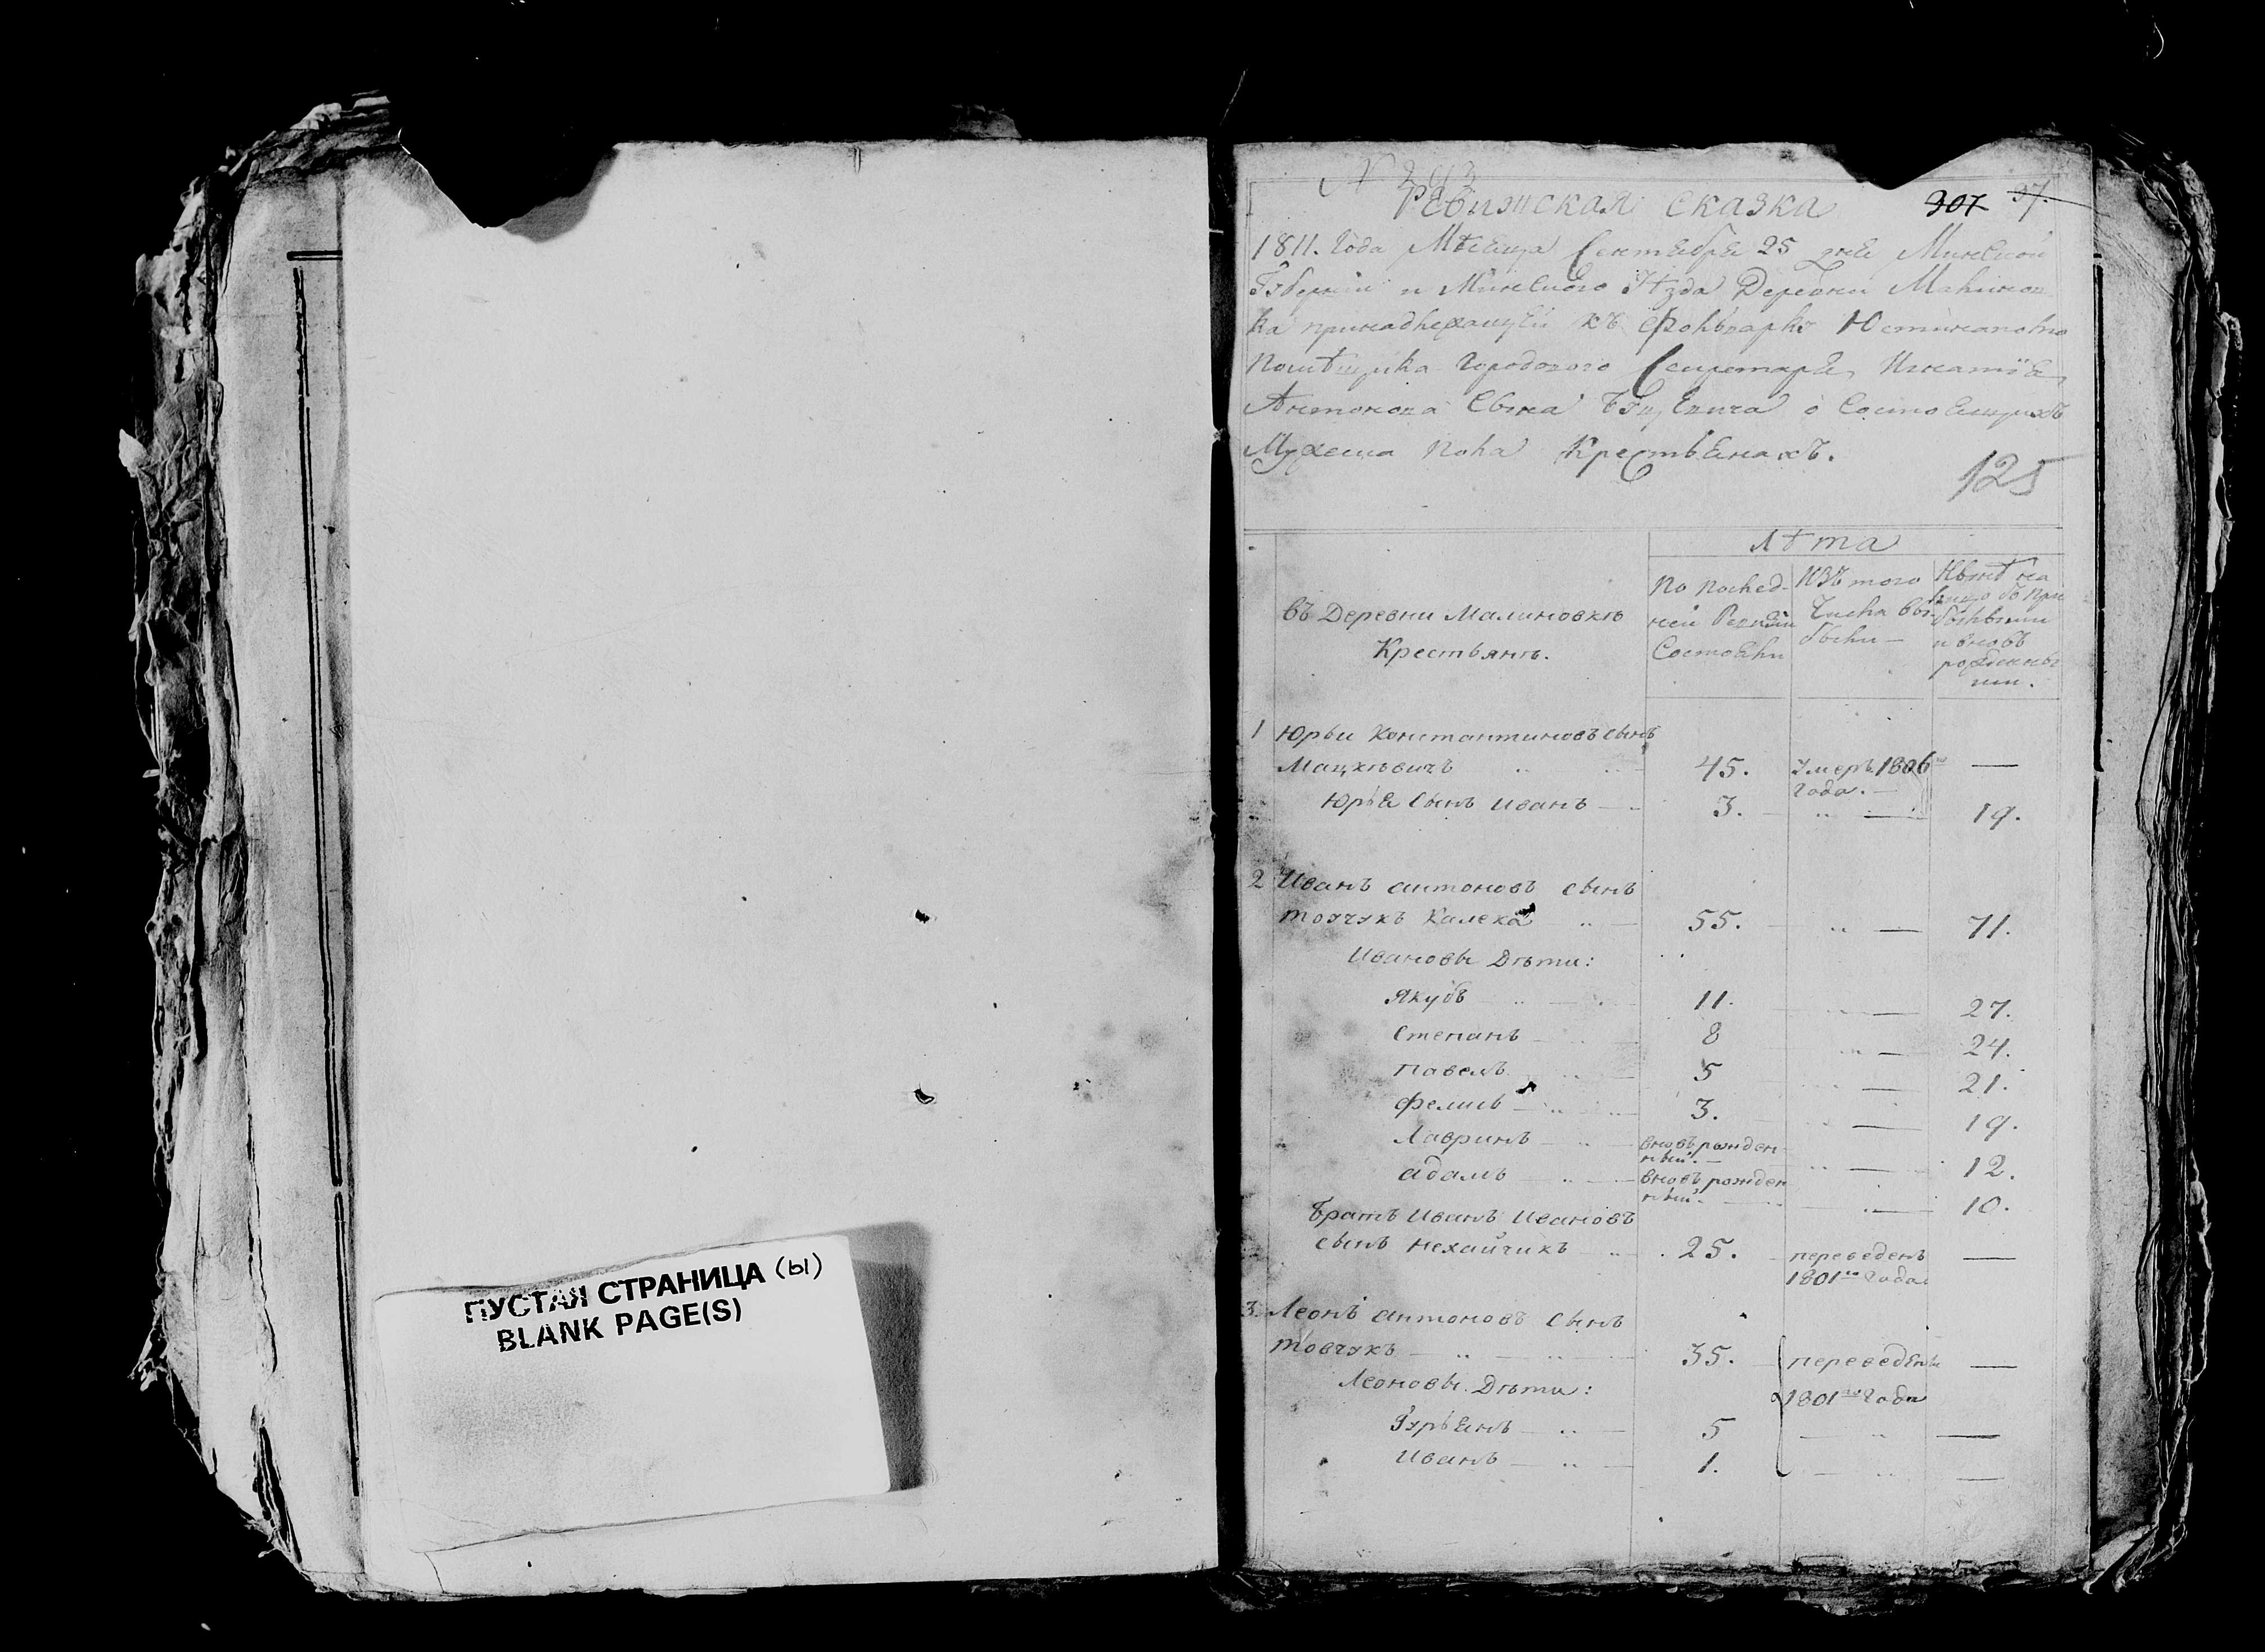 ПУСТАЯ СТРАНИЦА (ы)
BLANK PAGE(S)
Ревижская сказка
307 37.
1811. Года Мѣсеца Сентебре 25 дне Минской
Губернии и Минского Уѣзда Деревни Малинов
ка принадлежащей къ Фольварку Юстиканово
Помѣщика Городового Секретаре Игнатiе
Антонова Сына о Состоещихъ
Мужеска Пола Крестьенахъ.
125
Лѣта
въ Деревни Малиновкѣ
Крестьянъ.
По послед-
ней Ревизии
Состоели
Изъ того
Числа вы-
были —
Нынѣ на
лицо съ при
былыми
и вновь
рожденны
ми.
1 Юрьи Константиновъ сынъ
Мацкѣвичъ 45. Умеръ 1806го —
Года. —
Юрье сынъ Иванъ — 3. — 19.
2 Иванъ антоновъ сынъ
тоучукъ Калека 55. — 71.
Ивановы Дѣти:
Якубъ 11. — 27.
Степанъ 8 — 24.
Павелъ 5 — 21.
Фелипъ 3. — 19.
Лавринъ вновь рожден
ный. — 12.
адамъ вновь рожден
ный. — 10.
Братъ Иванъ Ивановъ
сынъ Нехайчикъ 25. переведенъ —
1801го Года
3. Леонъ антоновъ сынъ
товчукъ 35. переведены —
1801го Года
Леоновы Дѣти:
Гурьенъ 5 —
Иванъ 1. —